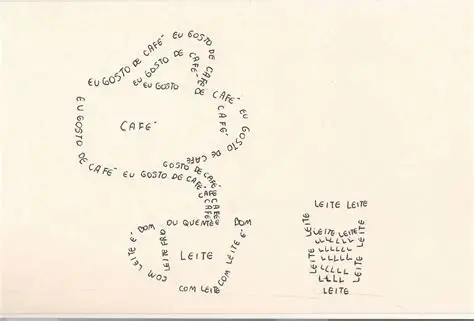 EU GOSTO DE CAFÉ EU GOSTO DE CAFÉ
EU GOSTO DE CAFÉ
EU GOSTO DE CAFÉ
EU GOSTO DE CAFÉ
CAFÉ
EU GOSTO DE CAFÉ EU GOSTO DE CAFÉ
GOSTO DE CAFÉ
CAFÉ CAFÉ
CAFÉ CAFÉ
LEITE É BOM OU QUENTE
LEITE FRIO
COM LEITE É BOM
LEITE
COM LEITE
COM LEITE
LEITE LEITE
LEITE
LEITE LEITE
LEITE
LLLLL
LLLLL
LEITE
LLLLL
LEITE
LLLL
LEITE